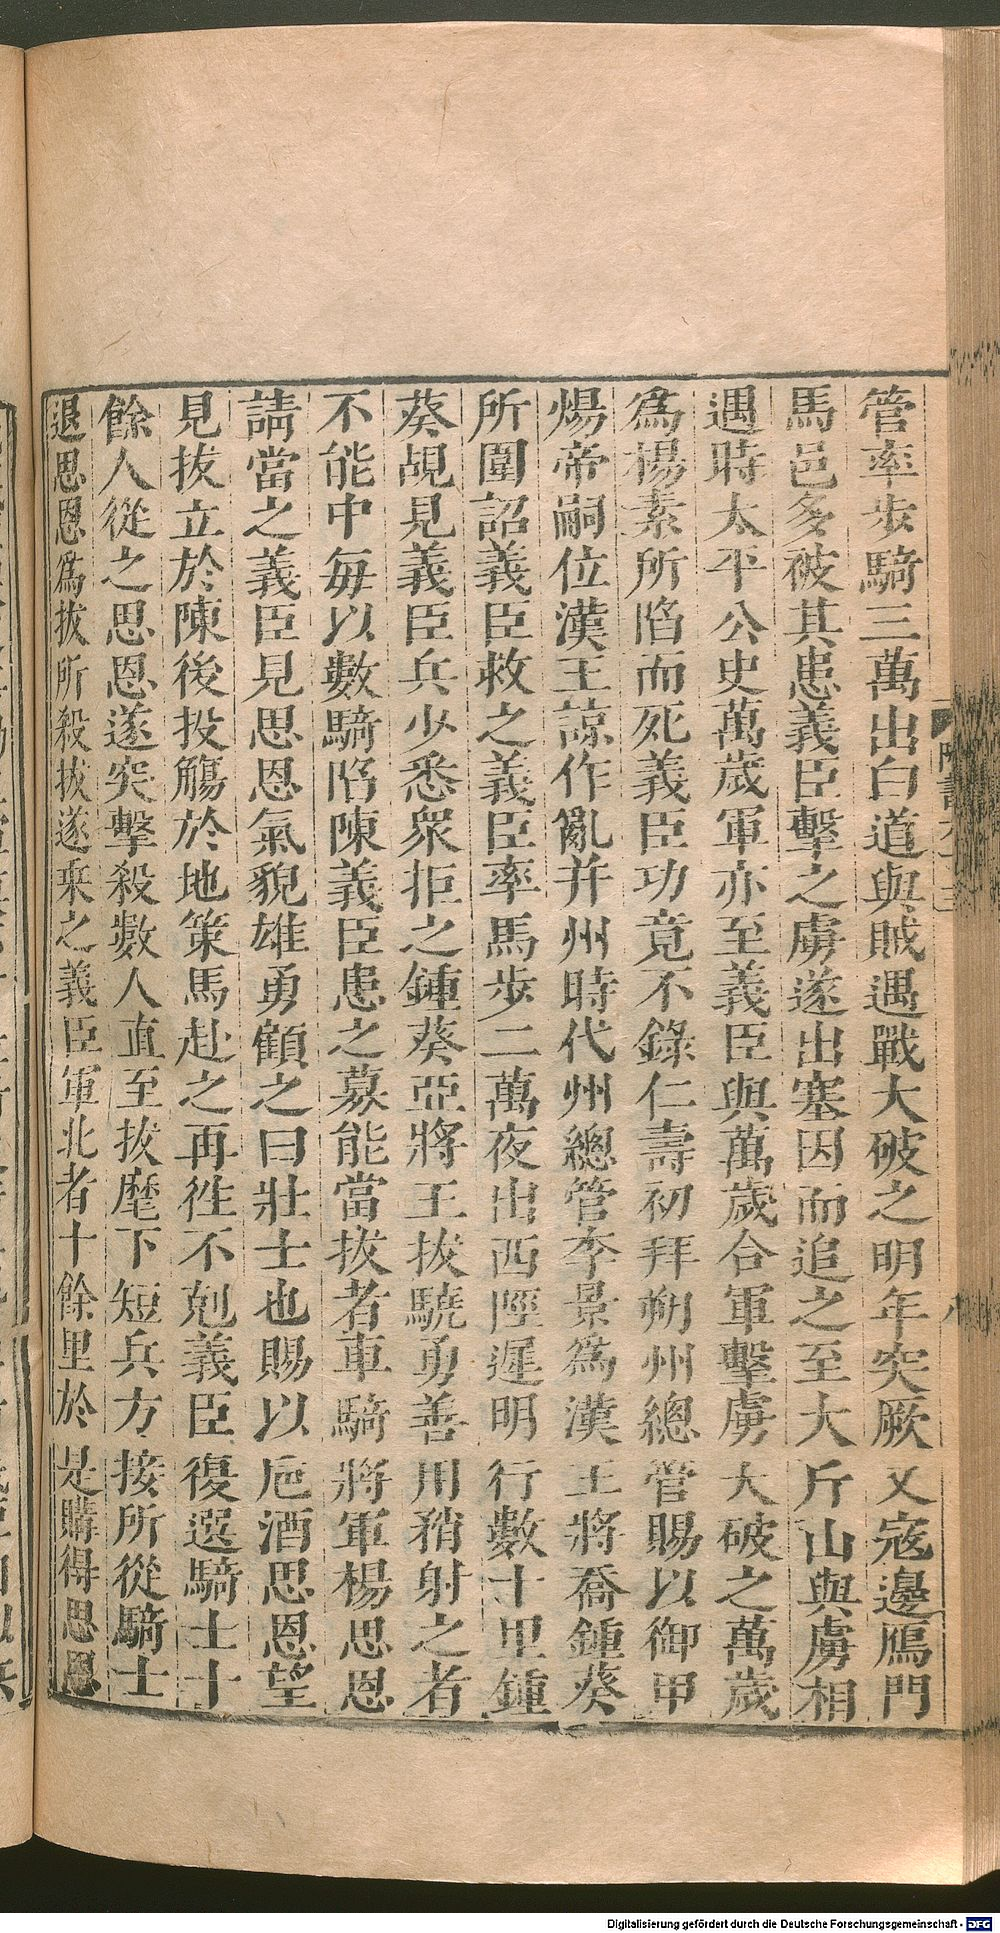 管率步騎三萬出白道與賊遇戰大破之明年突厥又寇邊鴈門
馬邑多被其患義臣擊之虜遂出塞因而追之至大斤山與虜相
遇時太平公史萬歲軍亦至義臣與萬歲合軍擊虜大破之萬歲
爲楊素所陷而死義臣功竟不錄仁壽初拜朔州總管賜以御甲
煬帝嗣位漢王諒作亂并州時代州總管李景爲漢王將喬鍾葵
所圍詔義臣救之義臣率馬步二萬夜出西陘遲明行數十里鍾
葵覘見義臣兵少悉衆拒之鍾葵亞將王拔驍勇善用矟射之者
不能中每以數騎陷陳義臣患之募能當拔者車騎將軍楊思恩
請當之義臣見思恩氣貌雄勇顧之曰壯士也賜以卮酒思恩望
見拔立於陳後投觴於地策馬赴之再徃不剋義臣復選騎士十
餘人從之思恩遂突擊殺數人直至拔麾下短兵方接所從騎士
退思恩爲拔所殺拔遂乘之義臣軍北者十餘里於是購得思恩
Digitalisierung gefördert durch die Deutsche Forschungsgemeinschaft - DFG